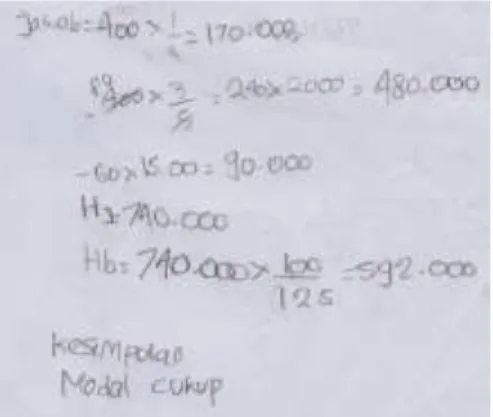 Jawab = 400 × 1/4 = 170.000
400 × 3/5 = 240 × 2000 = 480.000
- 60 × 15.00 = 90.000
HJ = 740.000
Hb = 740.000 × 100/125 = 592.000
Kesimpulan
Modal cukup